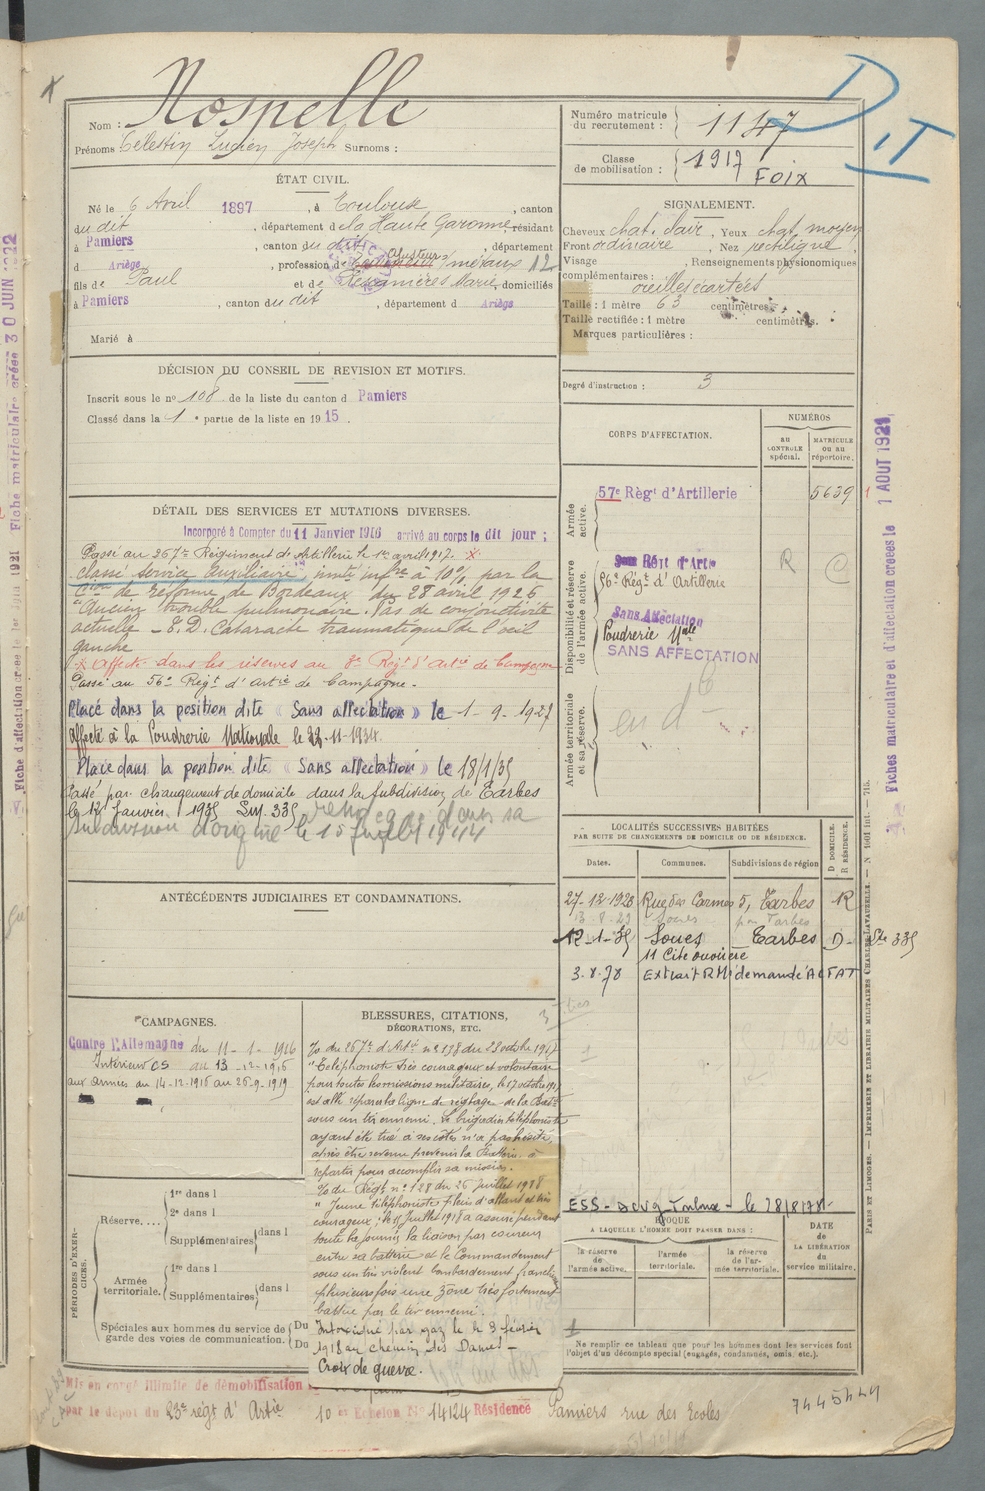 Nom : Nospelle
Prénoms Célestin Lucien Joseph Surnoms :
Numéro matricule du recrutement : 1147
Classe de mobilisation : 1917 FOIX
DIT
ÉTAT CIVIL.
Né le 6 Avril 1897, à Toulouse, canton
du dit, département de la Haute Garonne, résidant
à Pamiers, canton du dit, département
d Ariège, profession de ajusteur s/métaux 12
fils de Paul et de Marie, domiciliés
à Pamiers, canton du dit, départem d Ariège
Marié à
SIGNALEMENT.
Cheveux chat. clair, Yeux chat. moyen
Front ordinaire, Nez rectiligne
Visage , Renseignements physionomiques
complémentaires :
oreilles écartées
Taille : 1 mètre 63 centimètres.
Taille rectifiée : 1 mètre centimètres.
Marques particulières :
Degré d'instruction : 3
DÉCISION DU CONSEIL DE REVISION ET MOTIFS.
Inscrit sous le nº 108 de la liste du canton d Pamiers
Classé dans la 1e partie de la liste en 1915.
CORPS D'AFFECTATION.
NUMÉROS
AU CONTROLE spécial.
MATRICULE OU AU répertoire.
Armée active.
57e Régt d'Artillerie 5639
Disponibilité et réserve de l'armée active.
Régt d'Artie R C
56e Régt d'Artillerie
Sans Affectation
Poudrerie Nale
SANS AFFECTATION
Armée territoriale et sa réserve.
DÉTAIL DES SERVICES ET MUTATIONS DIVERSES.
Incorporé à Compter du 11 Janvier 1916 arrivé au corps le dit jour ;
Passé au 267e Régiment de Artillerie le 1er avril 1917. X
classé service auxiliaire, invté infre à 10% par la
Cion de réforme de Bordeaux du 28 avril 1926
"Ancien trouble pulmonaire. Pas de conjonctivite
actuelle - E.D. Cataracte traumatique de l'oeil
gauche
X Affecté dans les réserves au 8e Régt d'Artie de Campagne
Passé au 56e Régt d'Artie de Campagne.
Placé dans la position dite « Sans affectation » le 1-9-1927
affecté à la Poudrerie Nationale le 22-11-1934.
Placé dans la position dite « Sans affectation » le 18/1/35
Passé par changement de domicile dans la Subdivision de Tarbes
le 12 Janvier 1935 335
subdivision d'origine le 15 Juillet 1944
ANTÉCÉDENTS JUDICIAIRES ET CONDAMNATIONS.
LOCALITÉS SUCCESSIVES HABITÉES
PAR SUITE DE CHANGEMENTS DE DOMICILE OU DE RÉSIDENCE.
Dates. Communes. Subdivisions de région D DOMICILE. R RÉSIDENCE.
27-12-1920 Rue des Carmes 5, Tarbes R
13-8-23 Soues par Tarbes
12-1-35 Soues Tarbes D 335
11 Cité ouvrière
3.8.78 Extrait RM demande ACFAT
CAMPAGNES.
Contre l'Allemagne du 11-1-1916
Intérieur CS au 13-12-1916
aux armées du 14-12-1916 au 26-9-1919
BLESSURES, CITATIONS,
DÉCORATIONS, ETC.
O/ du 267e d'Artie nº 138 du 23 octobre 1917
"Téléphoniste très courageux et volontaire
pour toutes les missions militaires, le 17 octobre 1917
est allé réparer la ligne de réglage de la Batie
sous un tir ennemi. Le brigadier téléphoniste
ayant été tué à ses côtés n'a pas hésité,
après être revenu prévenir la Batterie, à
repartir pour accomplir sa mission.
O/ du Régt nº 128 du 26 Juillet 1918
"Jeune téléphoniste plein d'allant et très
courageux ; le 15 Juillet 1918 a assuré pendant
toute la journée la liaison par coureur
entre sa batterie et le Commandement
sous un très violent bombardement franchissant
plusieurs fois une zone très fortement
battue par le tir ennemi.
Intoxiqué par gaz le 3 février
1918 au chemin des Dames
Croix de guerre.
PÉRIODES D'EXERCICES.
Réserve.... 1re dans l
2e dans l
Supplémentaires dans l
Armée territoriale. 1re dans l
Supplémentaires dans l
Spéciales aux hommes du service de garde des voies de communication. Du
Du
ESS - ACVG - Toulouse - le 28/8/78
ÉPOQUE
A LAQUELLE L'HOMME DOIT PASSER DANS :
la réserve de l'armée active.
l'armée territoriale.
la réserve de l'armée territoriale.
DATE de LA LIBÉRATION du service militaire.
Ne remplir ce tableau que pour les hommes dont les services font
l'objet d'un décompte spécial (engagés, condamnés, omis, etc.).
Mis en congé illimité de démobilisation
par le dépôt du 23e régt d'Artie 10e Echelon Nº 14124 Résidence Pamiers rue des Ecoles
7445444
Fiches matricule et d'affectation créées le 1 AOUT 1921
PARIS ET LIMOGES. — IMPRIMERIE ET LIBRAIRIE MILITAIRES CHARLES-LAVAUZELLE.
Fiche matriculaire créée 30 JUIN 1922
Fiche d'affection créé le 1921